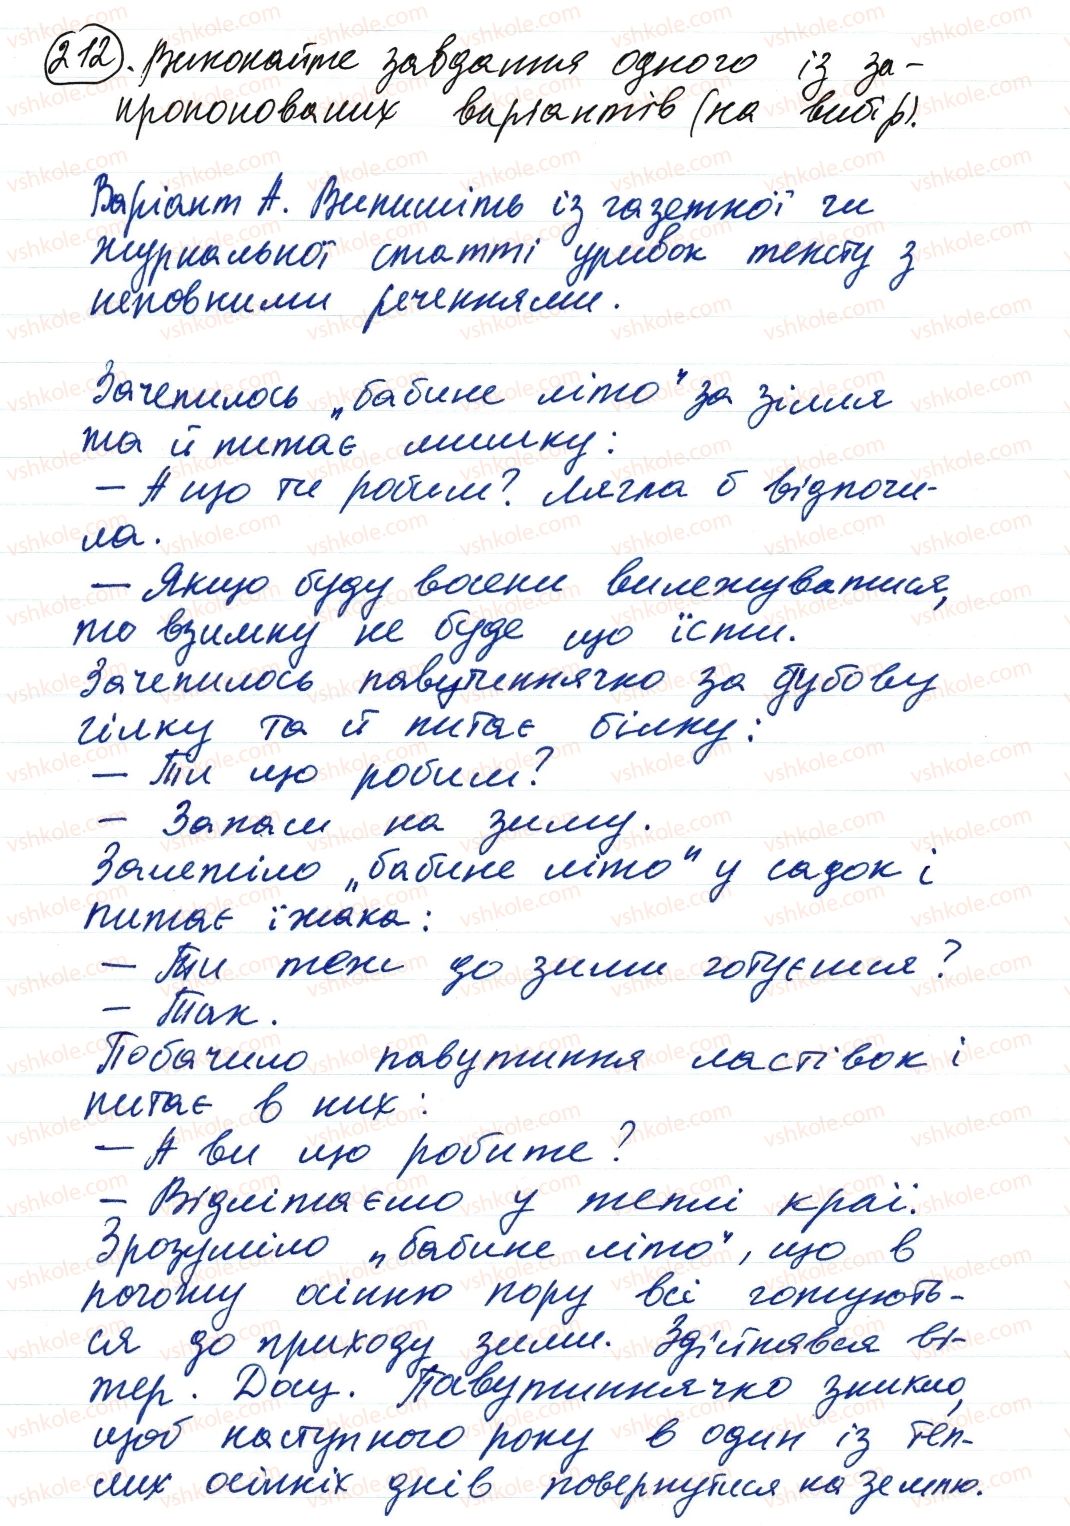 212. Виконайте завдання одного із за-
пропонованих варіантів (на вибір).
Варіант А. Випишіть із газетної чи
журнальної статті уривок тексту з
неповними реченнями.
Зачепилось „бабине літо" за зілля
та й питає мишку:
— А що ти робиш? Лягла б відпочи-
ла.
— Якщо буду восени вилежуватися,
то взимку не буде що їсти.
Зачепилось павутиннячко за дубову
гілку та й питає білку:
— Ти що робиш?
— Запаси на зиму.
Залетіло „бабине літо" у садок і
питає їжака:
— Ти теж до зими готуєшся?
— Так.
Побачило павутиння ластівок і
питає в них:
— А ви що робите?
— Відлітаємо у теплі краї.
Зрозуміло „бабине літо", що в
погожу осінню пору всі готують-
ся до приходу зими. Здійнявся ві-
тер. Дощ. Павутиннячко зникло,
щоб наступного року в один із теп-
лих осінніх днів повернутися на землю.